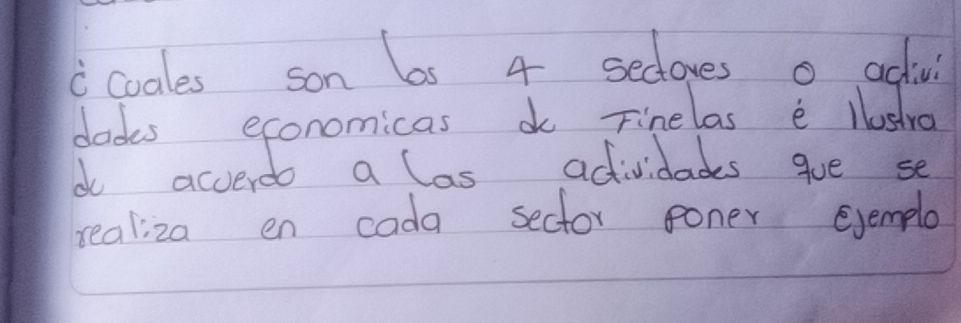 ¿Cuales son los 4 sectores o activi
dades economicas de Finelas é Ilustra
de acuerdo a las actividades que se
realiza en cada sector poner Ejemplo